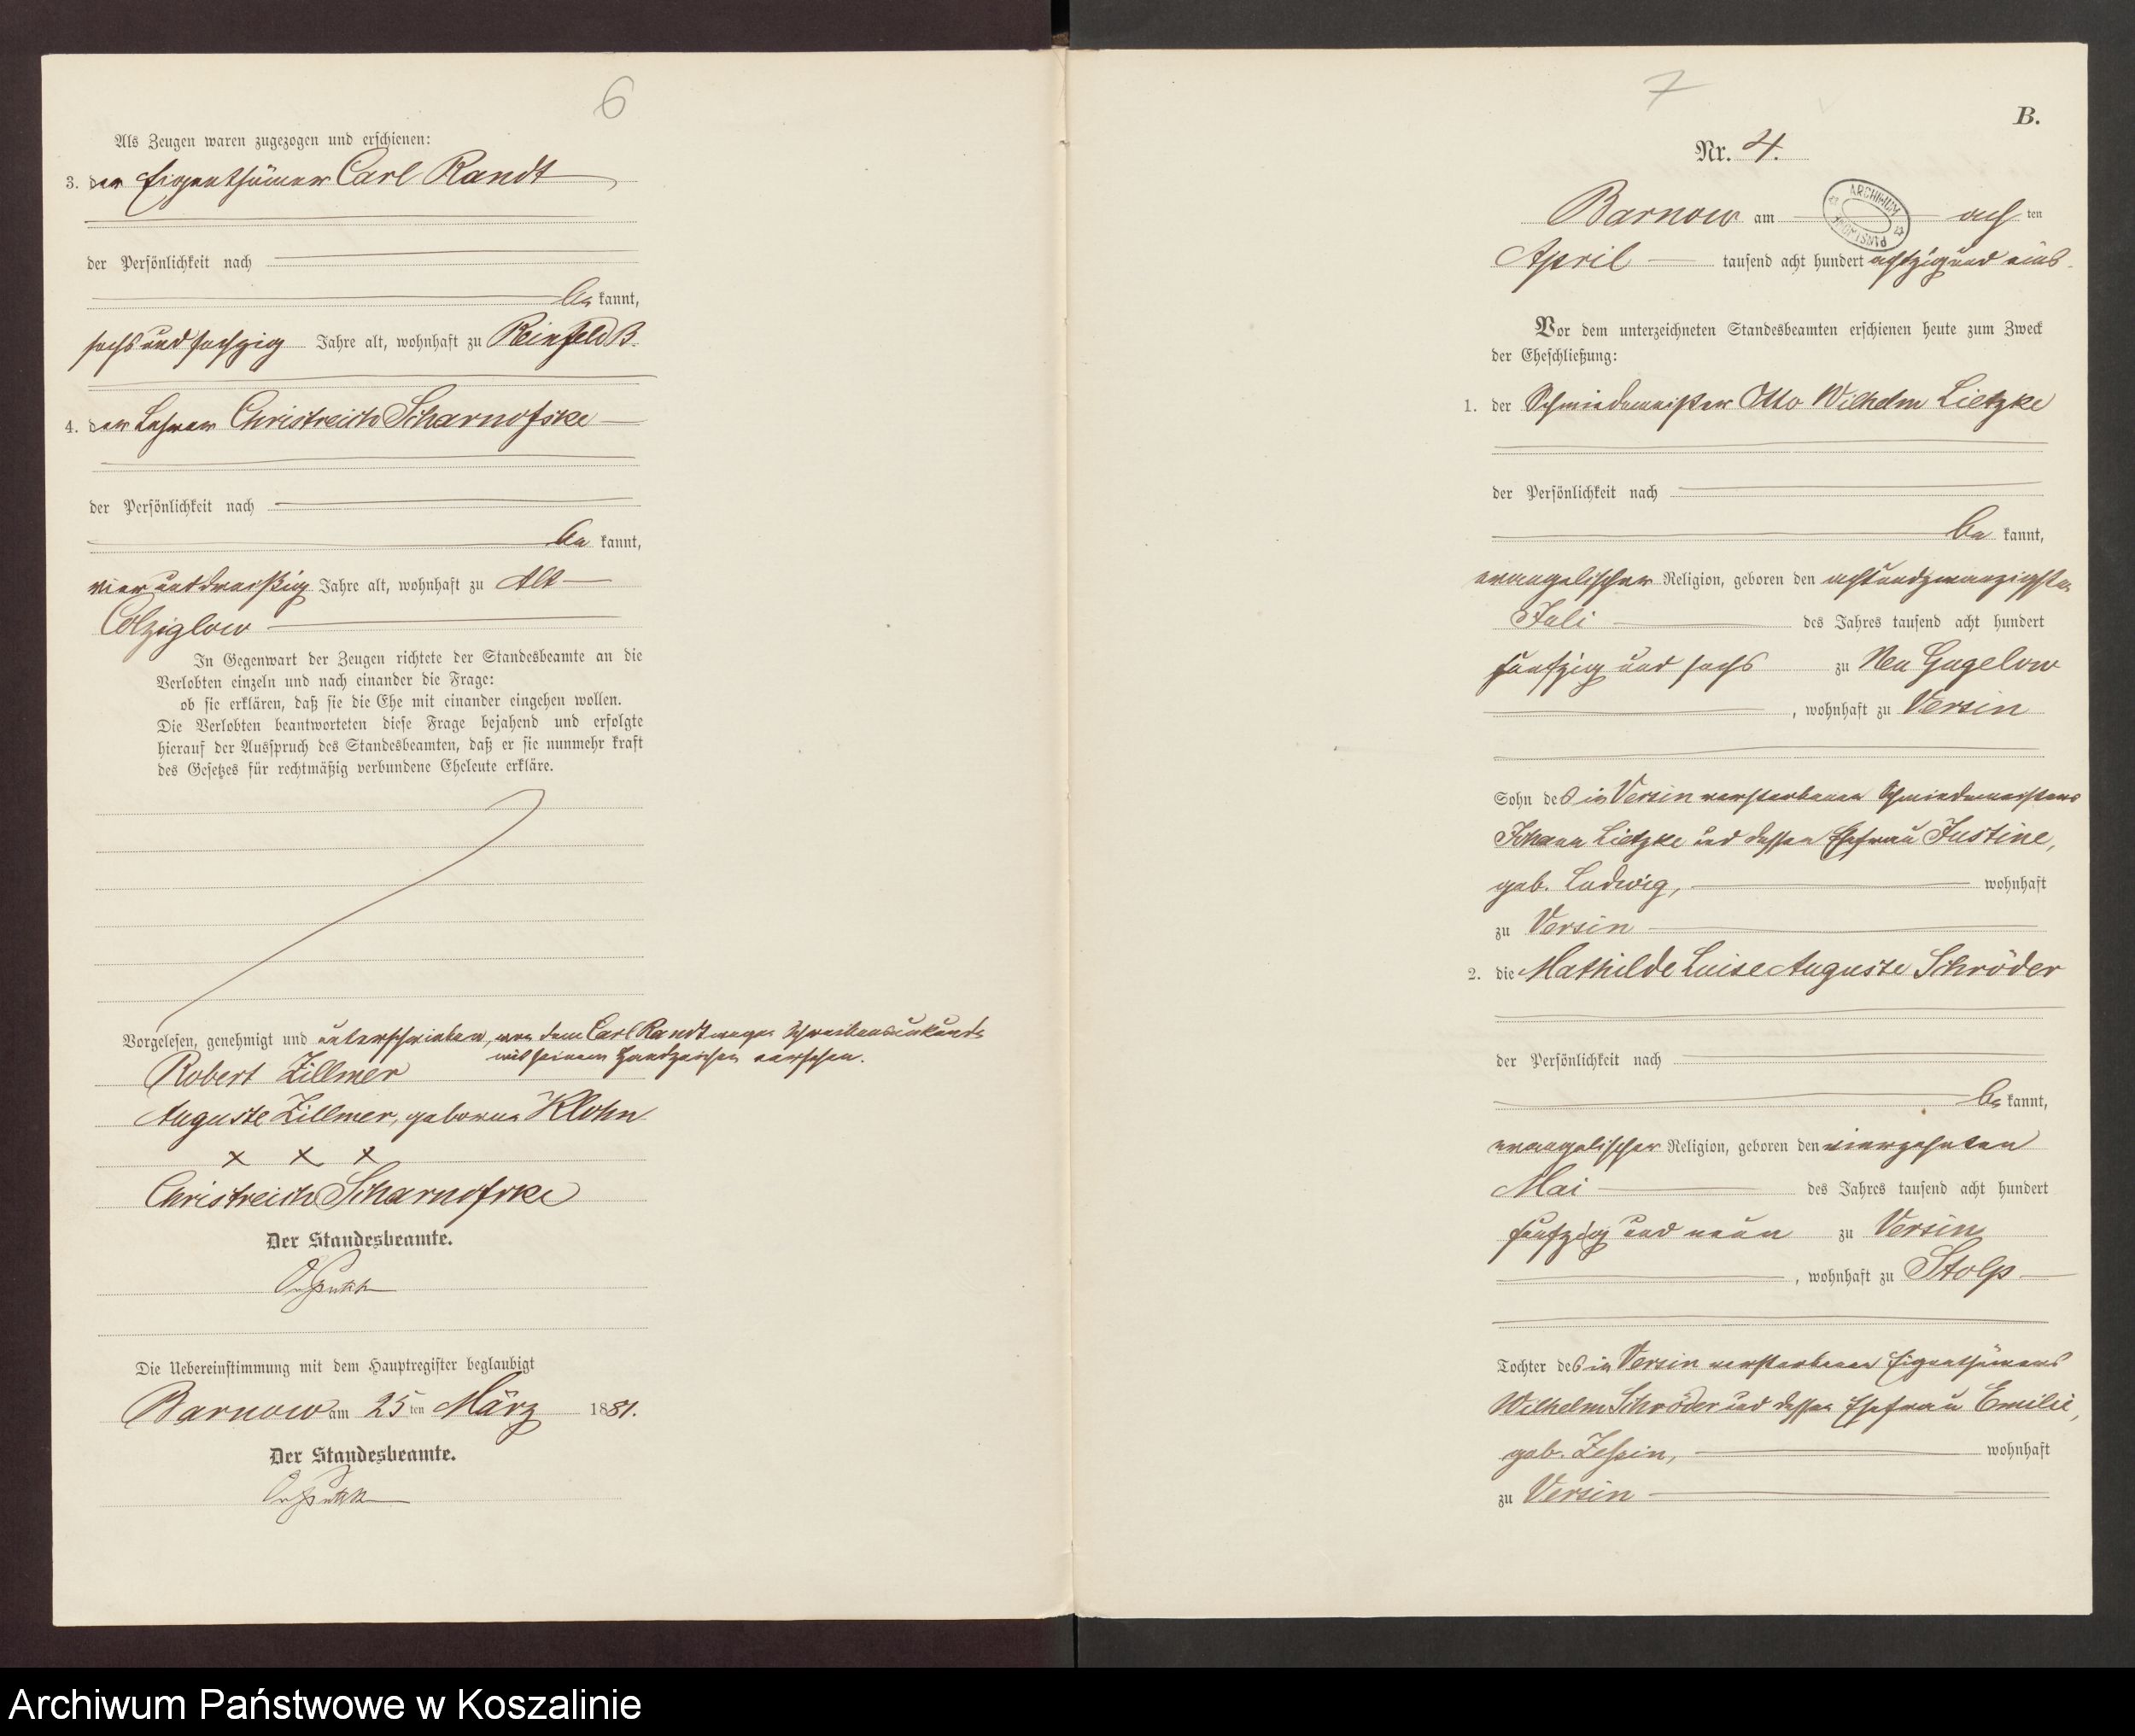 6
Als Zeugen waren zugezogen und erschienen:
3. der Eigenthümer Carl Randt
der Persönlichkeit nach
be kannt,
sechs und sechzig Jahre alt, wohnhaft zu Reinfeld B.
4. der Lehrer Christreich Scharnofske
der Persönlichkeit nach
be kannt,
vier und dreißig Jahre alt, wohnhaft zu Alt
Colziglow
In Gegenwart der Zeugen richtete der Standesbeamte an die
Verlobten einzeln und nach einander die Frage:
ob sie erklären, daß sie die Ehe mit einander eingehen wollen.
Die Verlobten beantworteten diese Frage bejahend und erfolgte
hierauf der Ausspruch des Standesbeamten, daß er sie nunmehr kraft
des Gesetzes für rechtmäßig verbundene Eheleute erkläre.
Vorgelesen, genehmigt und unterschrieben, von dem Carl Randt wegen Schreibensunkunde
mit seinem Handzeichen versehen.
Robert Zillmer
Auguste Zillmer, geborne Klohn
x x x
Christreich Scharnofske
Der Standesbeamte.
Die Uebereinstimmung mit dem Hauptregister beglaubigt
Barnow am 25 ten März 1881.
Der Standesbeamte.
7
B.
Nr. 4.
ARCHIWUM PAŃSTWOWE
Barnow am ach ten
April tausend acht hundert achtzig und eins.
Vor dem unterzeichneten Standesbeamten erschienen heute zum Zweck
der Eheschließung:
1. der Schmiedemeister Otto Wilhelm Lietzke
der Persönlichkeit nach
be kannt,
evangelischer Religion, geboren den achtundzwanzigsten
Juli des Jahres tausend acht hundert
fünfzig und sechs zu Neu Gugelow
, wohnhaft zu Versin
Sohn des in Versin verstorbenen Schmiedemeisters
Johann Lietzke und dessen Ehefrau Justine,
geb. Ludwig, wohnhaft
zu Versin
2. die Mathilde Luise Auguste Schröder
der Persönlichkeit nach
be kannt,
evangelischer Religion, geboren den vierzehnten
Mai des Jahres tausend acht hundert
fünfzig und neun zu Versin
, wohnhaft zu Stolp
Tochter des in Versin verstorbenen Eigenthümers
Wilhelm Schröder und dessen Ehefrau Emilie,
geb. wohnhaft
zu Versin
Archiwum Państwowe w Koszalinie